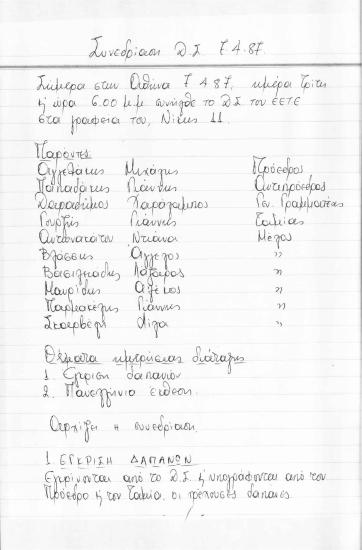 Συνεδρίαση Δ.Σ. 7.4.87.
Σήμερα στην Αθήνα 7 4 87, ημέρα Τρίτη
ή ώρα 6.00 μ.μ. συνήλθε το Δ.Σ του ΕΕΤΕ
στα γραφεία του, Νίκης 11.
Παρόντες
Αγγελάκης Μιχάλης Πρόεδρος
Παπαδάκης Γιάννης Αντιπρόεδρος
Δαραδήμος Χαράλαμπος Γεν. Γραμματέας
Γουρζής Γιάννης Ταμίας
Αντωνάτου Ντιάνα Μέλος
Βλάσσης Άγγελος "
Βασιλειάδης Λάζαρος "
Μαυρίδης "
Παρμακέλης Γιάννης "
Λίζα "
Θέματα ημερήσιας διάταξης
1. Έγκριση δαπανών
2. Πανελλήνια έκθεση.
Αρχίζει η συνεδρίαση.
1. ΕΓΚΡΙΣΗ ΔΑΠΑΝΩΝ
Εγκρίνονται από το Δ.Σ. ή υπογράφονται από τον
Πρόεδρο ή τον Ταμία, οι τρέχουσες δαπάνες.